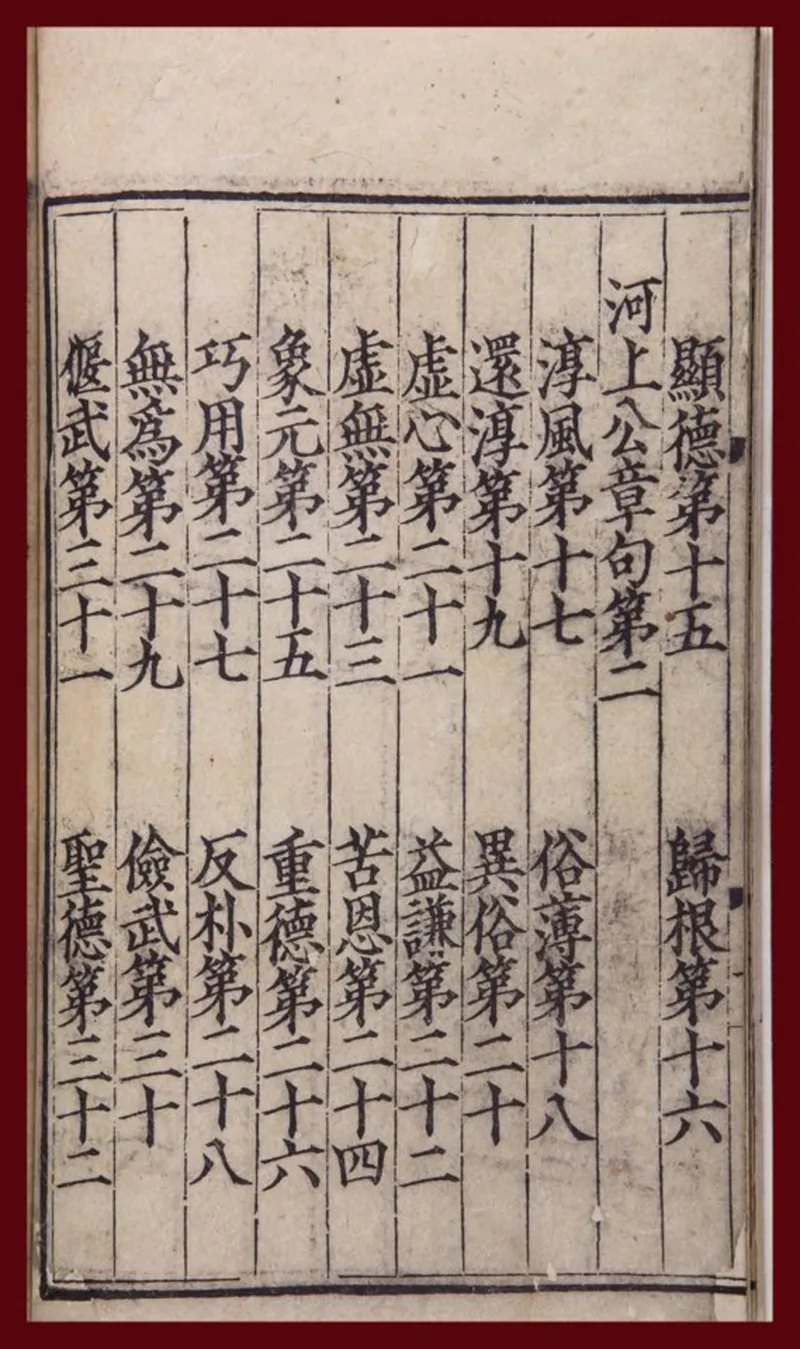 顯德第十五 歸根第十六
河上公章句第二
淳風第十七 俗薄第十八
還淳第十九 異俗第二十
虛心第二十一 益謙第二十二
虛無第二十三 苦恩第二十四
象元第二十五 重德第二十六
巧用第二十七 反朴第二十八
無爲第二十九 儉武第三十
偃武第三十一 聖德第三十二